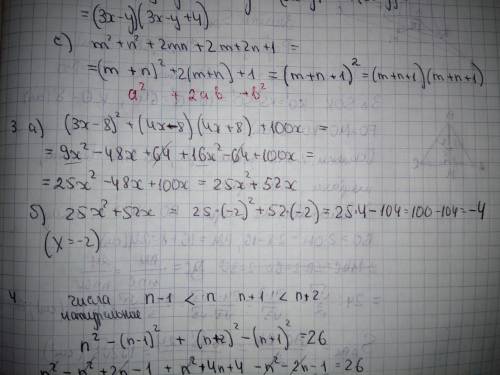 =(3x-y)(3x-y+4)
c) m²+n²+2mn+2m+2n+1 =
=(m+n)²+2(m+n)+1 = (m+n+1)² = (m+n+1)(m+n+1)
a² + 2ab + b²
3. a) (3x-8)² + (4x-8)(4x+8) +100x =
= 9x² -48x +64 +16x² -64 +100x =
= 25x² -48x+100x = 25x²+52x
б) 25x²+52x = 25·(-2)²+52·(-2) = 25·4 -104 = 100-104 = -4
(x=-2)
4 числа n-1 < n n+1 < n+2
натуральные
n² -(n-1)² + (n+2)² -(n+1)² = 26
n² - n² +2n -1 + n² +4n+4 - n² -2n -1 = 26